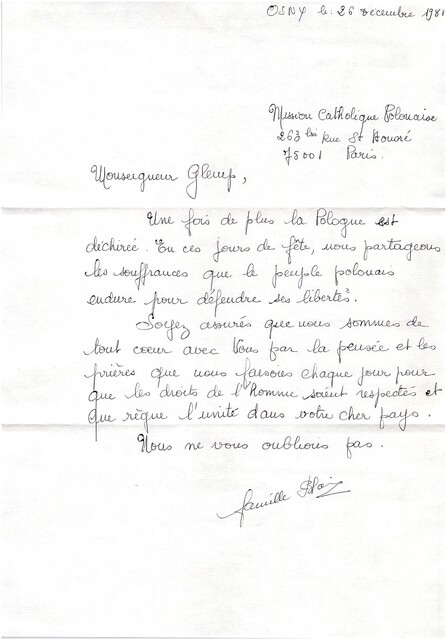 OSNY le: 26 Décembre 1981
Mission Catholique Polonaise
263 bis Rue St Honoré
75001 Paris.
Monseigneur Glemp,
Une fois de plus la Pologne est
déchirée. En ces jours de fête, nous partageons
les souffrances que le peuple polonais
endure pour défendre ses libertés.
Soyez assurés que nous sommes de
tout coeur avec Vous par la pensée et les
prières que nous faisons chaque jour pour
que les droits de l'Homme soient respectés et
que règne l'unité dans votre cher pays.
Nous ne vous oublions pas.
famille